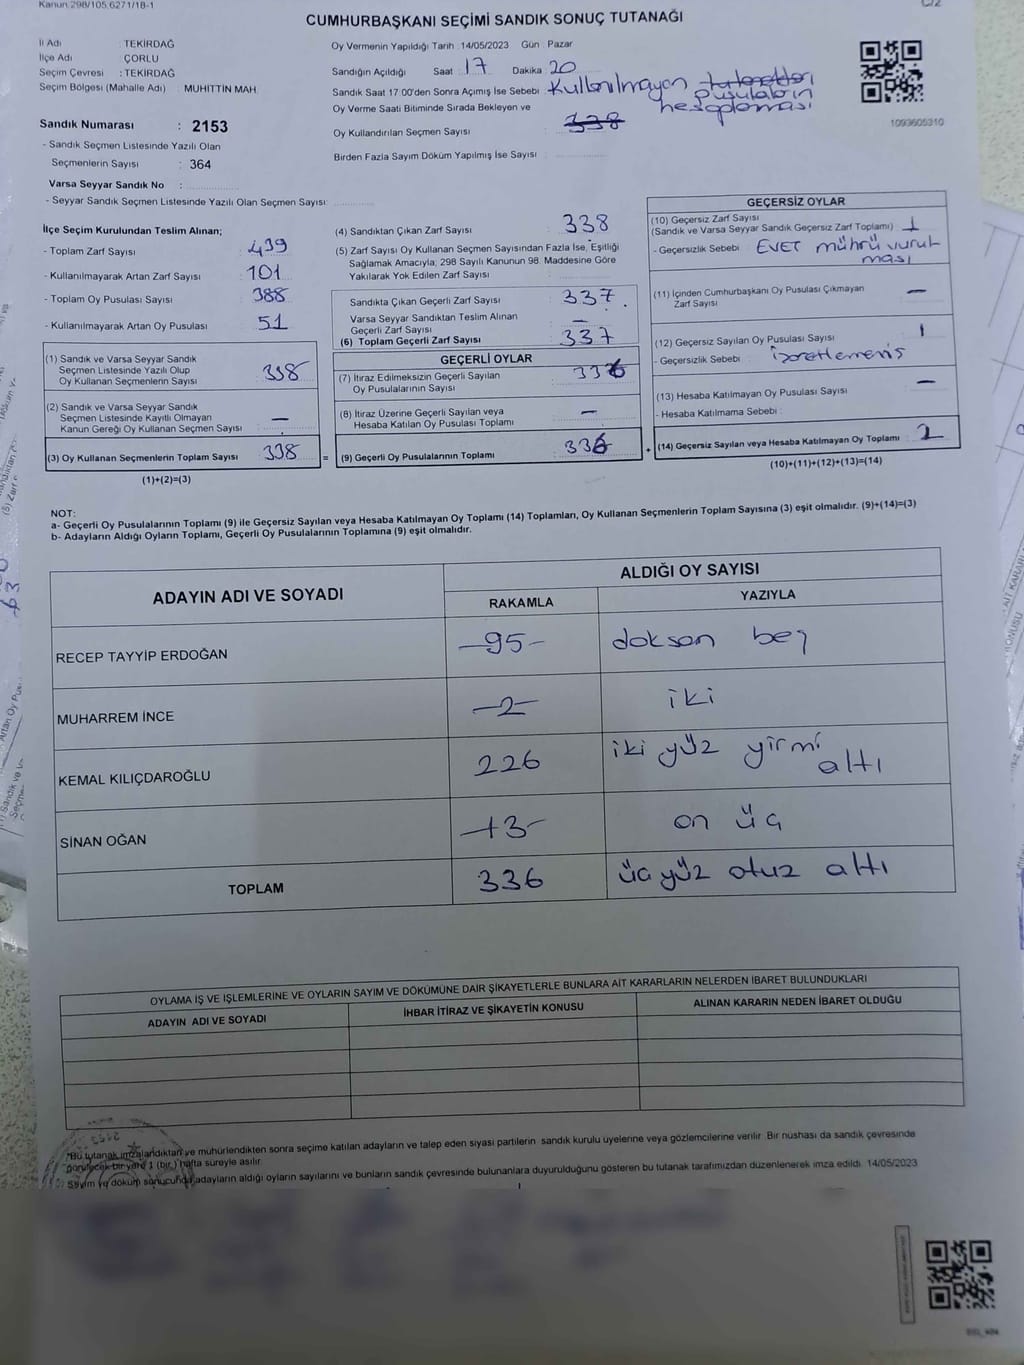 Kanun 298/105,6271/18-1
C/2
CUMHURBAŞKANI SEÇİMİ SANDIK SONUÇ TUTANAĞI
İl Adı : TEKİRDAĞ
İlçe Adı : ÇORLU
Seçim Çevresi : TEKİRDAĞ
Seçim Bölgesi (Mahalle Adı) : MUHİTTİN MAH.
Oy Vermenin Yapıldığı Tarih : 14/05/2023 Gün : Pazar
Sandığın Açıldığı Saat : 17 Dakika : 20
Sandık Saat 17.00'den Sonra Açımış İse Sebebi : Kullanılmayan pusulaların hesaplaması
Oy Verme Saati Bitiminde Sırada Bekleyen ve
Oy Kullandırılan Seçmen Sayısı : 338
Birden Fazla Sayım Döküm Yapılmış İse Sayısı :
1093605310
Sandık Numarası : 2153
- Sandık Seçmen Listesinde Yazılı Olan
Seçmenlerin Sayısı : 364
Varsa Seyyar Sandık No :
- Seyyar Sandık Seçmen Listesinde Yazılı Olan Seçmen Sayısı:
İlçe Seçim Kurulundan Teslim Alınan;
- Toplam Zarf Sayısı : 439
- Kullanılmayarak Artan Zarf Sayısı : 101
- Toplam Oy Pusulası Sayısı : 388
- Kullanılmayarak Artan Oy Pusulası : 51
(1) Sandık ve Varsa Seyyar Sandık
Seçmen Listesinde Yazılı Olup
Oy Kullanan Seçmenlerin Sayısı : 338
(2) Sandık ve Varsa Seyyar Sandık
Seçmen Listesinde Kayıtlı Olmayan
Kanun Gereği Oy Kullanan Seçmen Sayısı : —
(3) Oy Kullanan Seçmenlerin Toplam Sayısı : 338
(1)+(2)=(3)
(4) Sandıktan Çıkan Zarf Sayısı : 338
(5) Zarf Sayısı Oy Kullanan Seçmen Sayısından Fazla İse, Eşitliği
Sağlamak Amacıyla; 298 Sayılı Kanunun 98. Maddesine Göre
Yakılarak Yok Edilen Zarf Sayısı :
Sandıkta Çıkan Geçerli Zarf Sayısı : 337
Varsa Seyyar Sandıktan Teslim Alınan
Geçerli Zarf Sayısı : —
(6) Toplam Geçerli Zarf Sayısı : 337
GEÇERLİ OYLAR
(7) İtiraz Edilmeksizin Geçerli Sayılan
Oy Pusulalarının Sayısı : 336
(8) İtiraz Üzerine Geçerli Sayılan veya
Hesaba Katılan Oy Pusulası Toplamı : —
= (9) Geçerli Oy Pusulalarının Toplamı : 336
GEÇERSİZ OYLAR
(10) Geçersiz Zarf Sayısı
(Sandık ve Varsa Seyyar Sandık Geçersiz Zarf Toplamı) : 1
- Geçersizlik Sebebi : EVET mührü vurulması
(11) İçinden Cumhurbaşkanı Oy Pusulası Çıkmayan
Zarf Sayısı : —
(12) Geçersiz Sayılan Oy Pusulası Sayısı : 1
- Geçersizlik Sebebi : işaretlememiş
(13) Hesaba Katılmayan Oy Pusulası Sayısı : —
- Hesaba Katılmama Sebebi :
+ (14) Geçersiz Sayılan veya Hesaba Katılmayan Oy Toplamı : 2
(10)+(11)+(12)+(13)=(14)
NOT:
a- Geçerli Oy Pusulalarının Toplamı (9) ile Geçersiz Sayılan veya Hesaba Katılmayan Oy Toplamı (14) Toplamları, Oy Kullanan Seçmenlerin Toplam Sayısına (3) eşit olmalıdır. (9)+(14)=(3)
b- Adayların Aldığı Oyların Toplamı, Geçerli Oy Pusulalarının Toplamına (9) eşit olmalıdır.
ADAYIN ADI VE SOYADI
ALDIĞI OY SAYISI
RAKAMLA
YAZIYLA
RECEP TAYYİP ERDOĞAN —95— doksan beş
MUHARREM İNCE —2— iki
KEMAL KILIÇDAROĞLU 226 iki yüz yirmi altı
SİNAN OĞAN —13— on üç
TOPLAM 336 üç yüz otuz altı
OYLAMA İŞ VE İŞLEMLERİNE VE OYLARIN SAYIM VE DÖKÜMÜNE DAİR ŞİKAYETLERLE BUNLARA AİT KARARLARIN NELERDEN İBARET BULUNDUKLARI
ADAYIN ADI VE SOYADI
İHBAR İTİRAZ VE ŞİKAYETİN KONUSU
ALINAN KARARIN NEDEN İBARET OLDUĞU
*Bu tutanak imzalandıktan ve mühürlendikten sonra seçime katılan adayların ve talep eden siyasi partilerin sandık kurulu üyelerine veya gözlemcilerine verilir. Bir nüshası da sandık çevresinde
görülecek bir yere 1 (bir) hafta süreyle asılır.
Sayım ve döküm sonucunda adayların aldığı oyların sayılarını ve bunların sandık çevresinde bulunanlara duyurulduğunu gösteren bu tutanak tarafımızdan düzenlenerek imza edildi. 14/05/2023